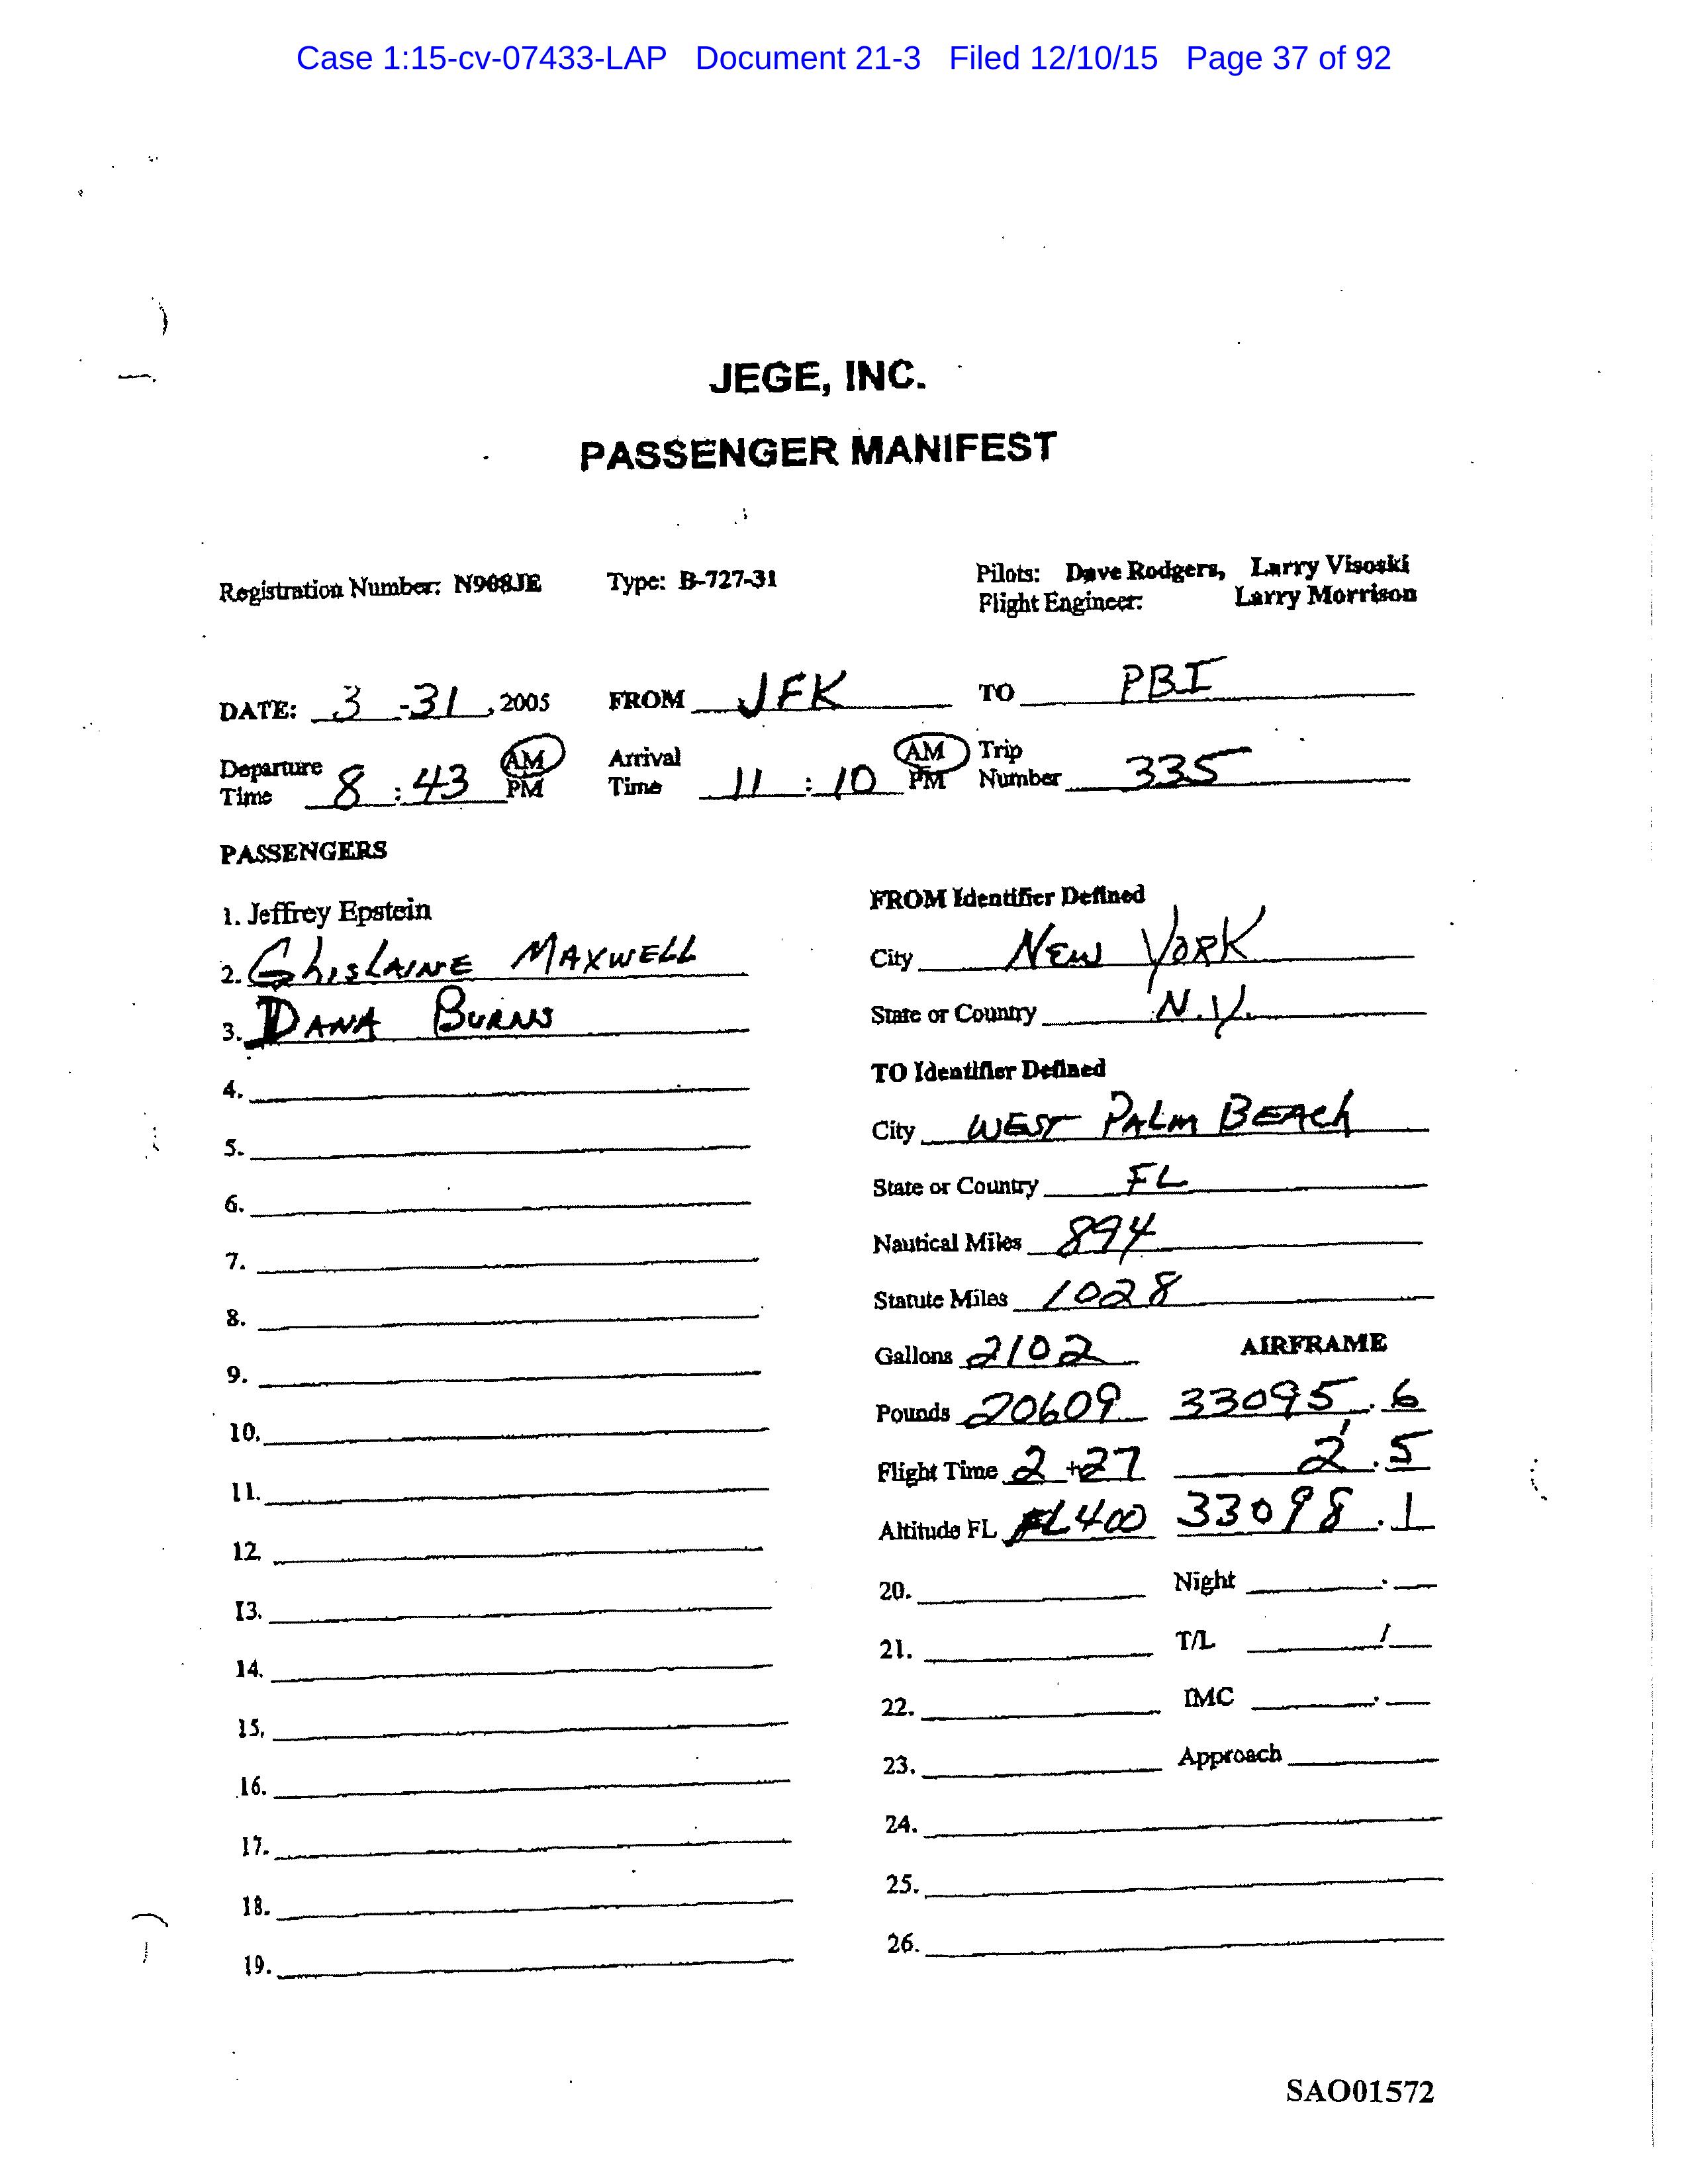 Case 1:15-cv-07433-LAP Document 21-3 Filed 12/10/15 Page 37 of 92
JEGE, INC.
PASSENGER MANIFEST
Registration Number: N908JE Type: B-727-31 Pilots: Dave Rodgers, Larry Visoski
Flight Engineer: Larry Morrison
DATE: 3 - 31, 2005 FROM JFK TO PBI
Departure Time 8 : 43 AM PM Arrival Time 11 : 10 AM PM Trip Number 335
PASSENGERS
1. Jeffrey Epstein
2. GhisLAINE MAXWELL
3. DANA BURNS
4.
5.
6.
7.
8.
9.
10.
11.
12.
13.
14.
15.
16.
17.
18.
19.
FROM Identifier Defined
City NEW YORK
State or Country N.Y.
TO Identifier Defined
City WEST PALM BEACh
State or Country FL
Nautical Miles 894
Statute Miles 1028
Gallons 2102 AIRFRAME
Pounds 20609 33095.6
Flight Time 2+27 2.5
Altitude FL FL400 33098.1
20. Night .
21. T/L /
22. IMC .
23. Approach
24.
25.
26.
SAO01572